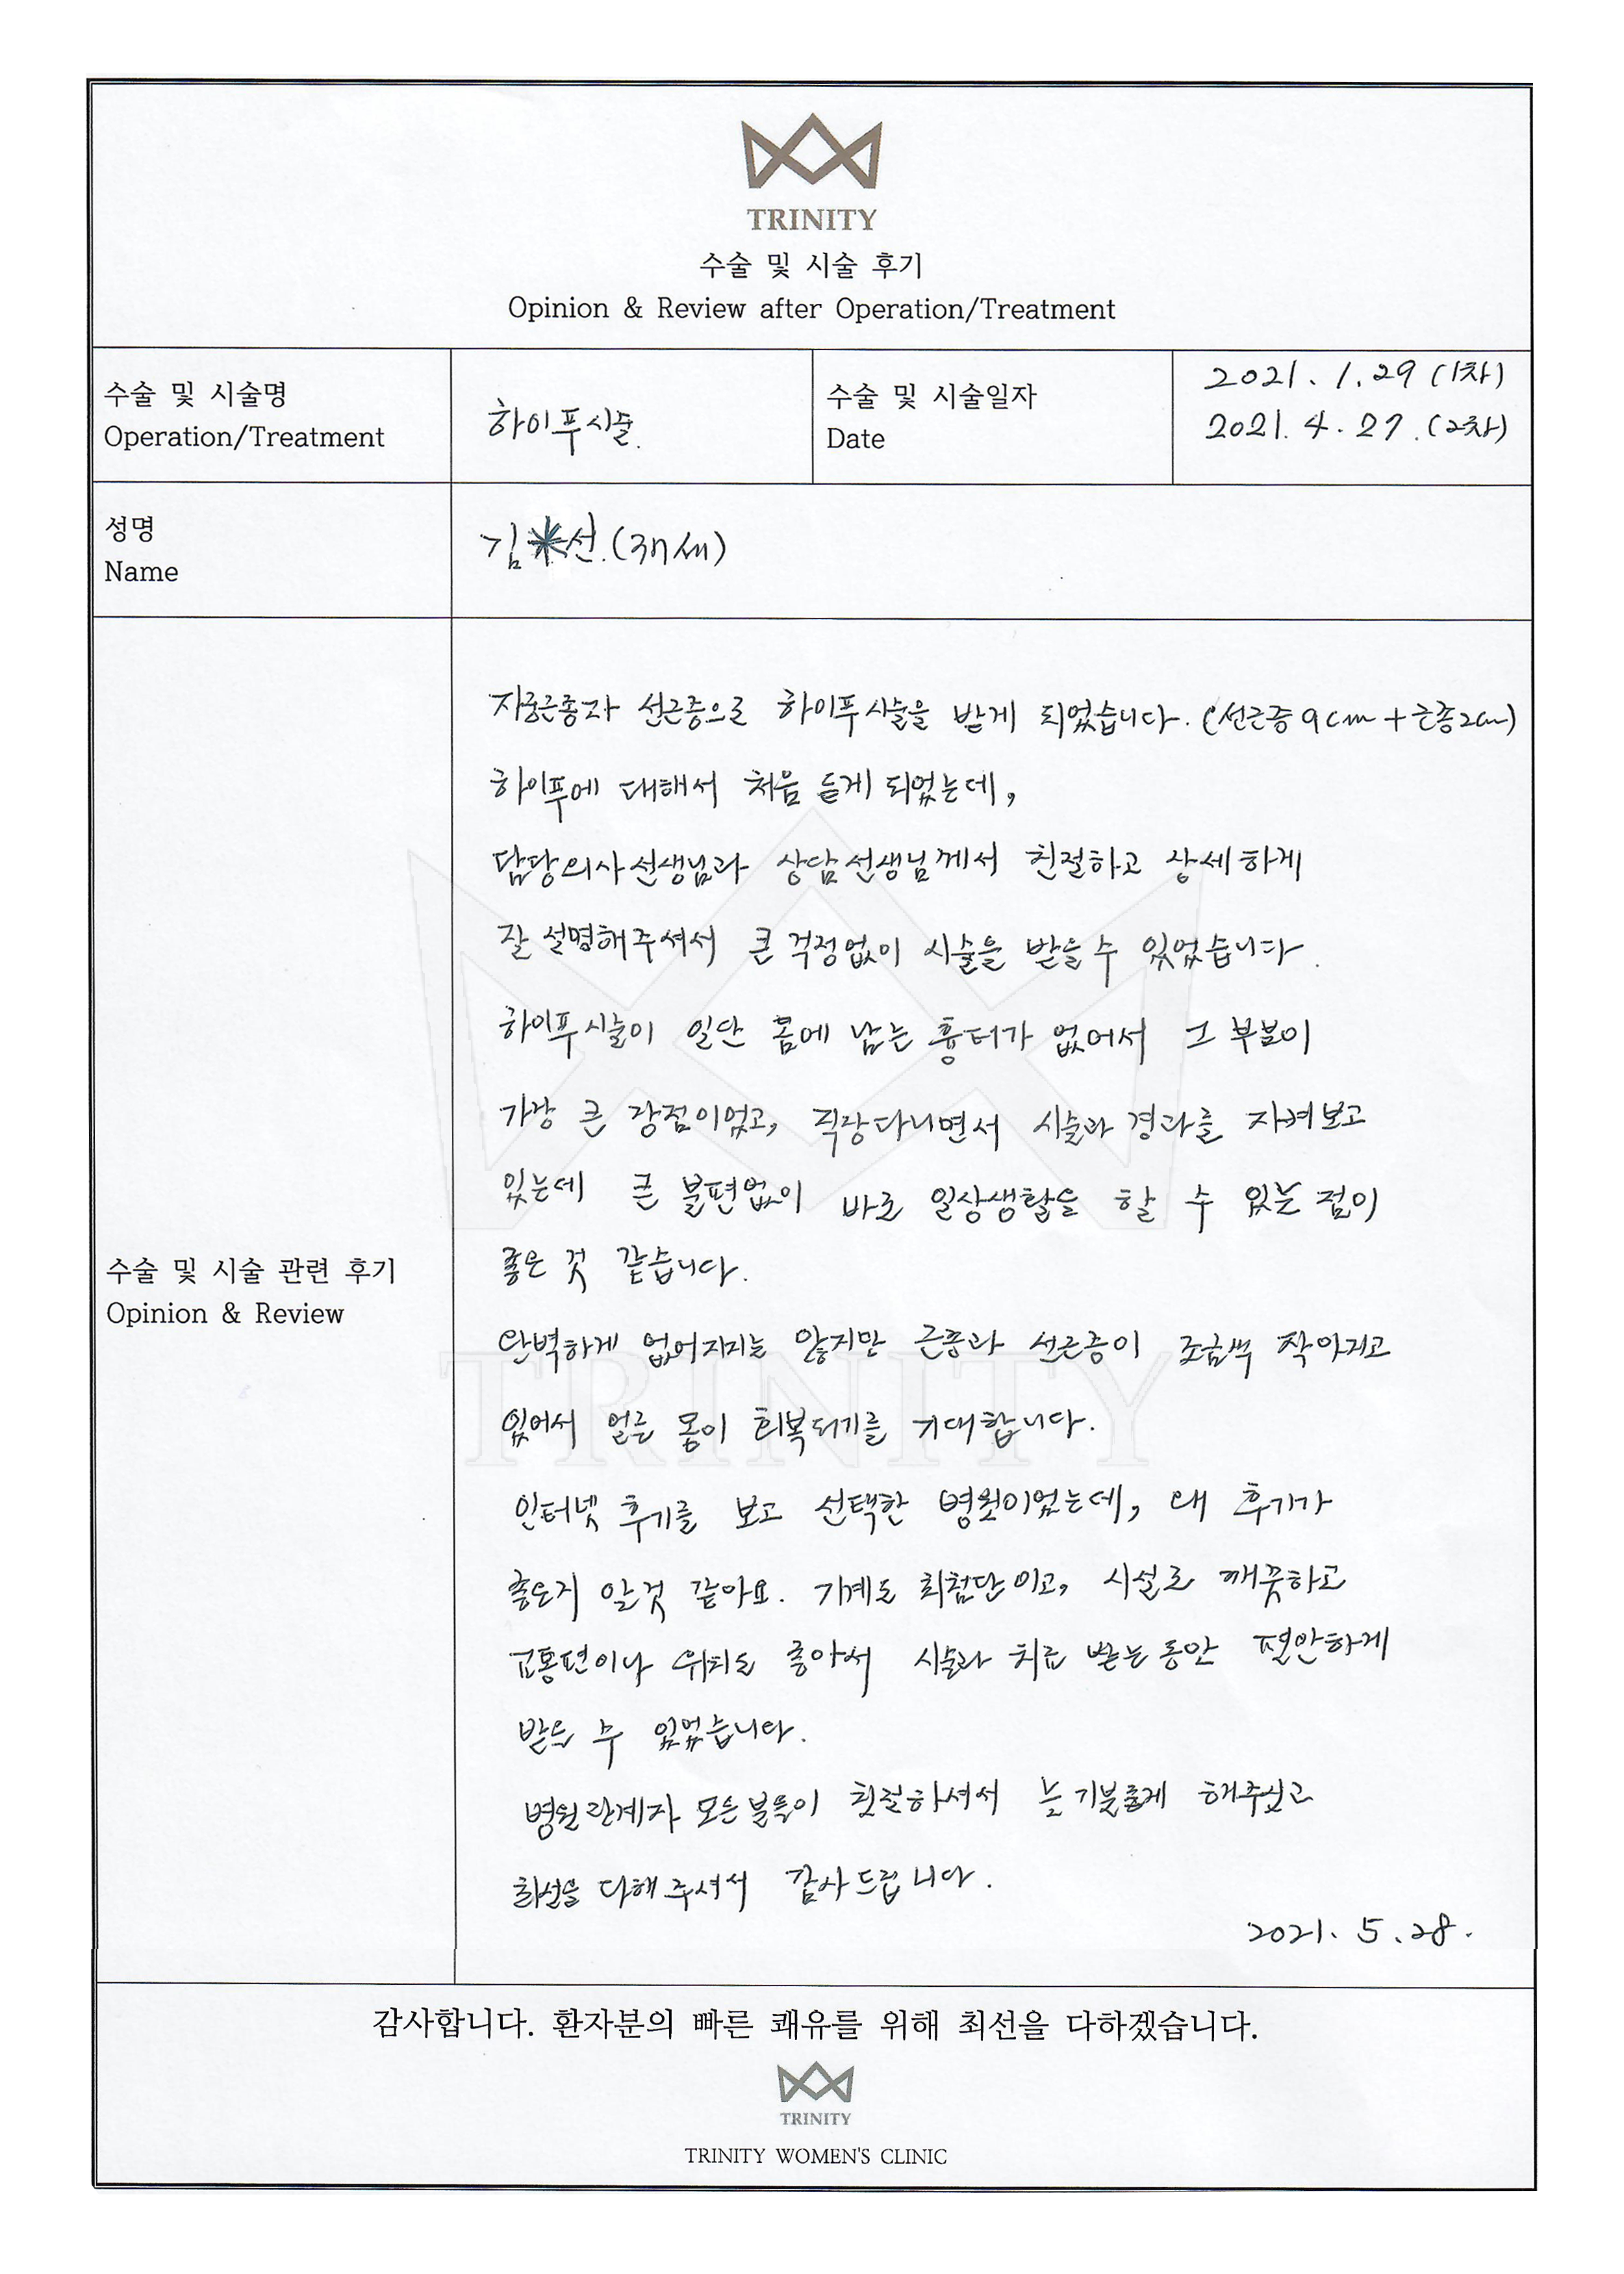 TRINITY
수술 및 시술 후기
Opinion & Review after Operation/Treatment
수술 및 시술명
Operation/Treatment
하이푸시술.
수술 및 시술일자
Date
2021. 1. 29 (1차)
2021. 4. 27. (2차)
성명
Name
김*선. (37세)
자궁근종과 선근증으로 하이푸시술을 받게 되었습니다. (선근증 9cm + 근종2cm)
하이푸에 대해서 처음 듣게 되었는데,
담당의사선생님과 상담선생님께서 친절하고 상세하게
잘 설명해주셔서 큰 걱정없이 시술을 받을 수 있었습니다.
하이푸시술이 일단 몸에 남는 흉터가 없어서 그 부분이
가장 큰 장점이었고, 직장다니면서 시술과 경과를 지켜보고
있는데 큰 불편없이 바로 일상생활을 할 수 있는 점이
좋은 것 같습니다.
완벽하게 없어지지는 않지만 근종과 선근증이 조금씩 작아지고
있어서 얼른 몸이 회복되기를 기대합니다.
수술 및 시술 관련 후기
Opinion & Review
인터넷 후기를 보고 선택한 병원이었는데, 왜 후기가
좋은지 알것 같아요. 기계도 최첨단이고, 시설도 깨끗하고
교통편이나 위치도 좋아서 시술과 치료 받는 동안 편안하게
받을 수 있었습니다.
병원관계자 모든분들이 친절하셔서 늘 기분좋게 해주셨고
최선을 다해 주셔서 감사드립니다.
2021. 5. 28.
감사합니다. 환자분의 빠른 쾌유를 위해 최선을 다하겠습니다.
TRINITY
TRINITY WOMEN'S CLINIC